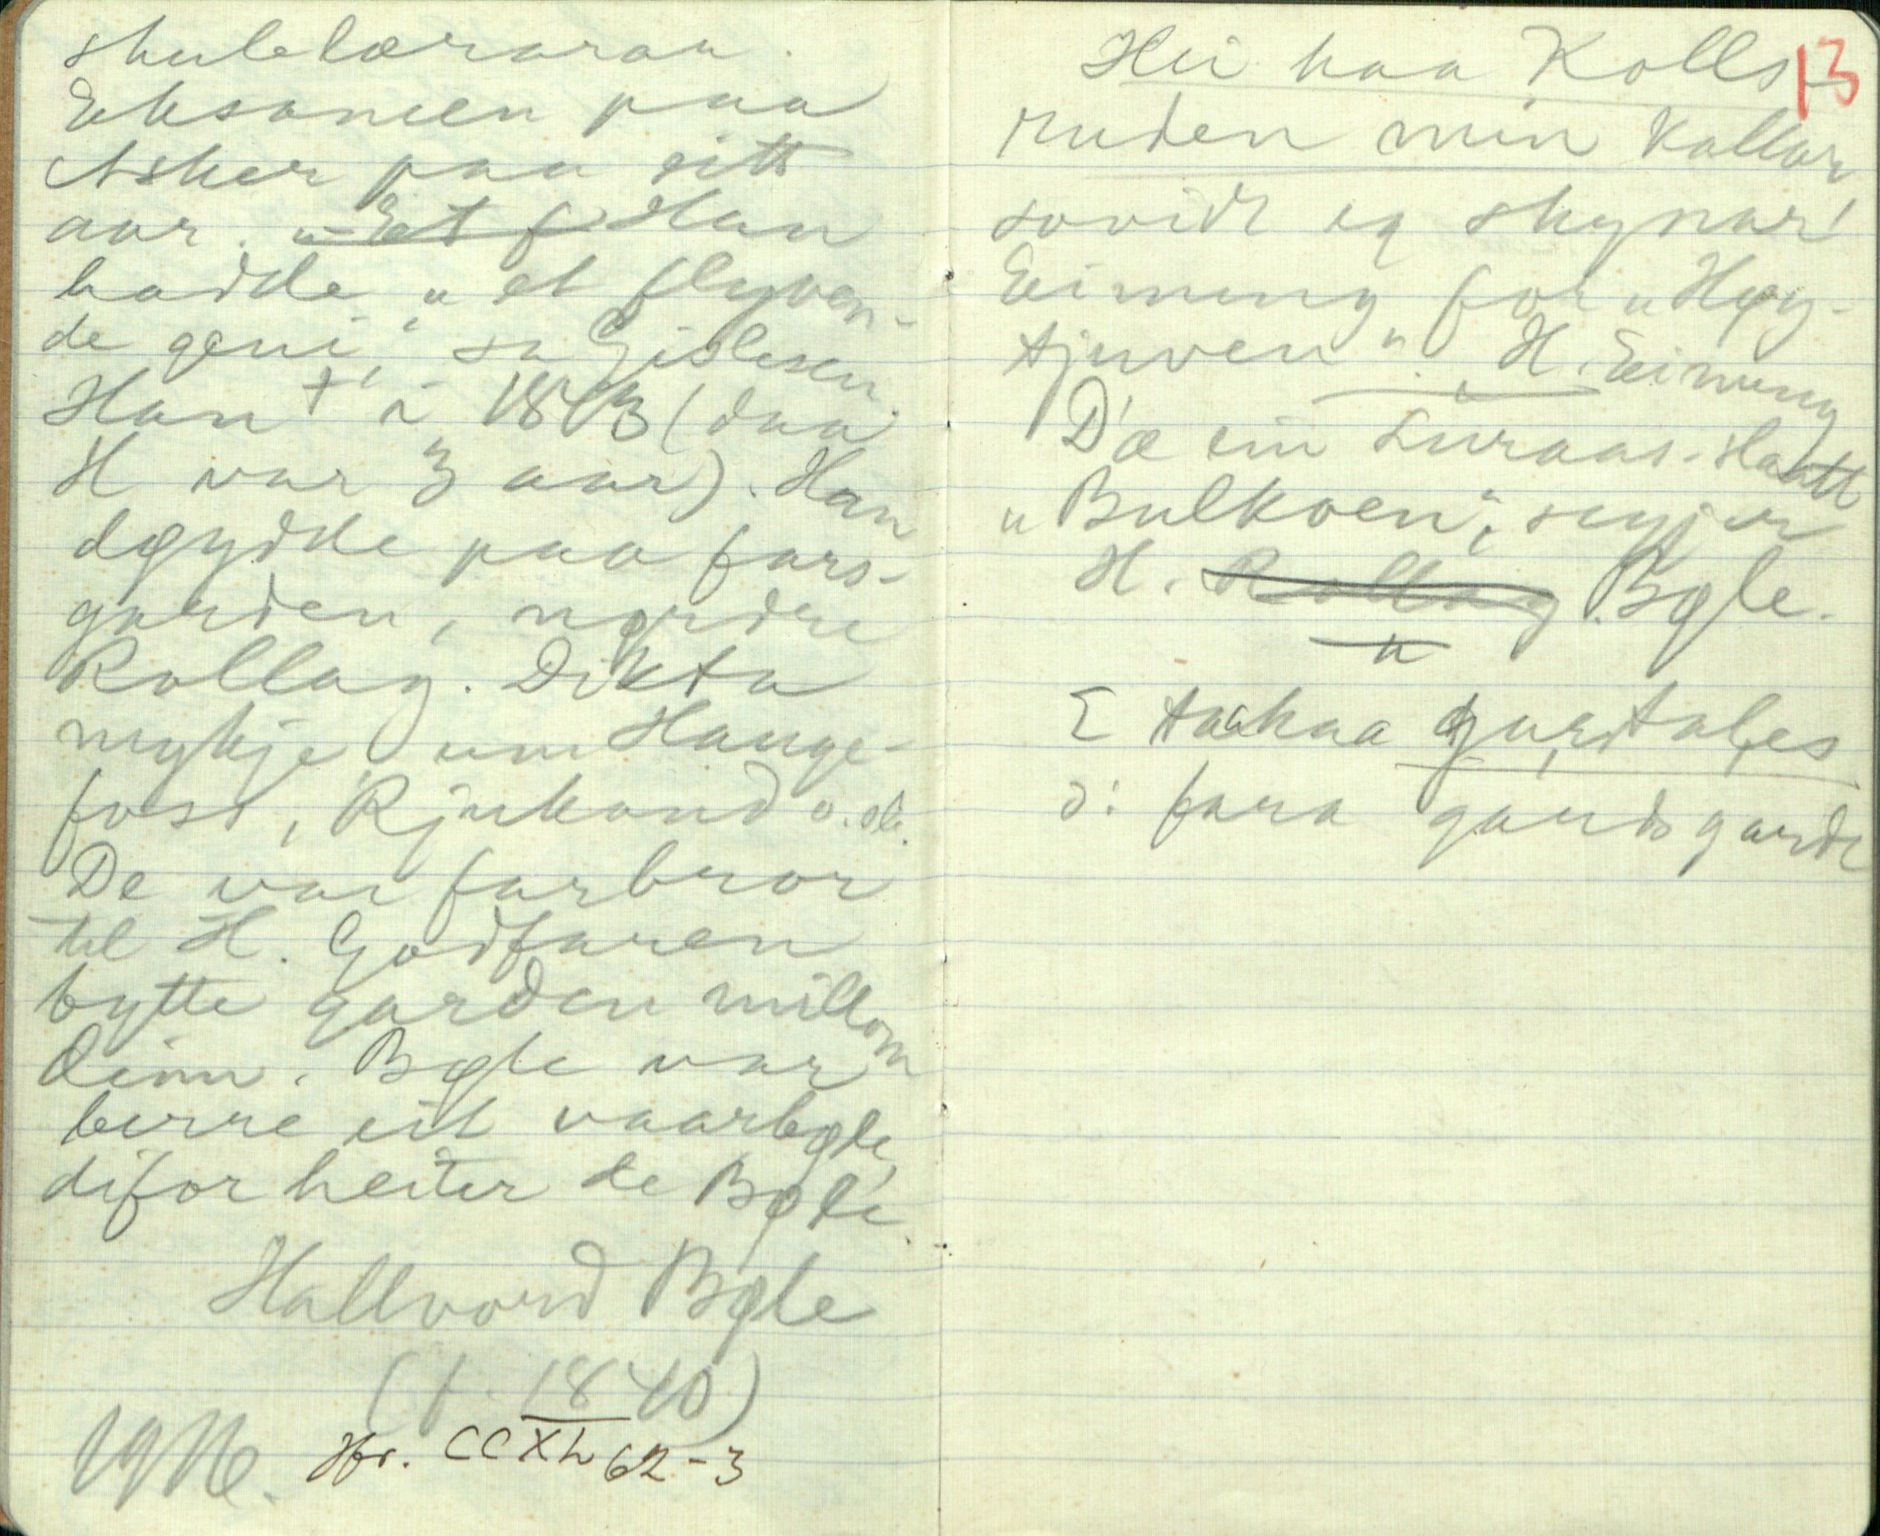 skulelæraran.
Eksamen paa
Asker paa eitt
aar. „Et f Han
hadde „et flyven-
de geni", sa Gislesen.
Han † i 1843 (daa
H var 3 aar). Han
døydde paa fars-
garden, nørdre
Rollag. Dikta
mykje um Hauge-
foss, Rjukand o.sl.
De var farbror
til H. Godfaren
bytte garden millom
deim. Bøle var
berre eit vaarbøle,
difor heiter de Bøle.
Hallvord Bøle
(f. 1840)
1916. Hfr. CCXL 62-3
13
Hei haa Kolls-
ruden min Kallar
sovidt eg skynar!
Eimung for „Høy-
tjuven". H. Eimung
D'æ ein Luraas-Hatt
„Bulkoen", seyjer
H. Rollag Bøle.
"
E taakaa gardtales
ɔ: fara gards garde